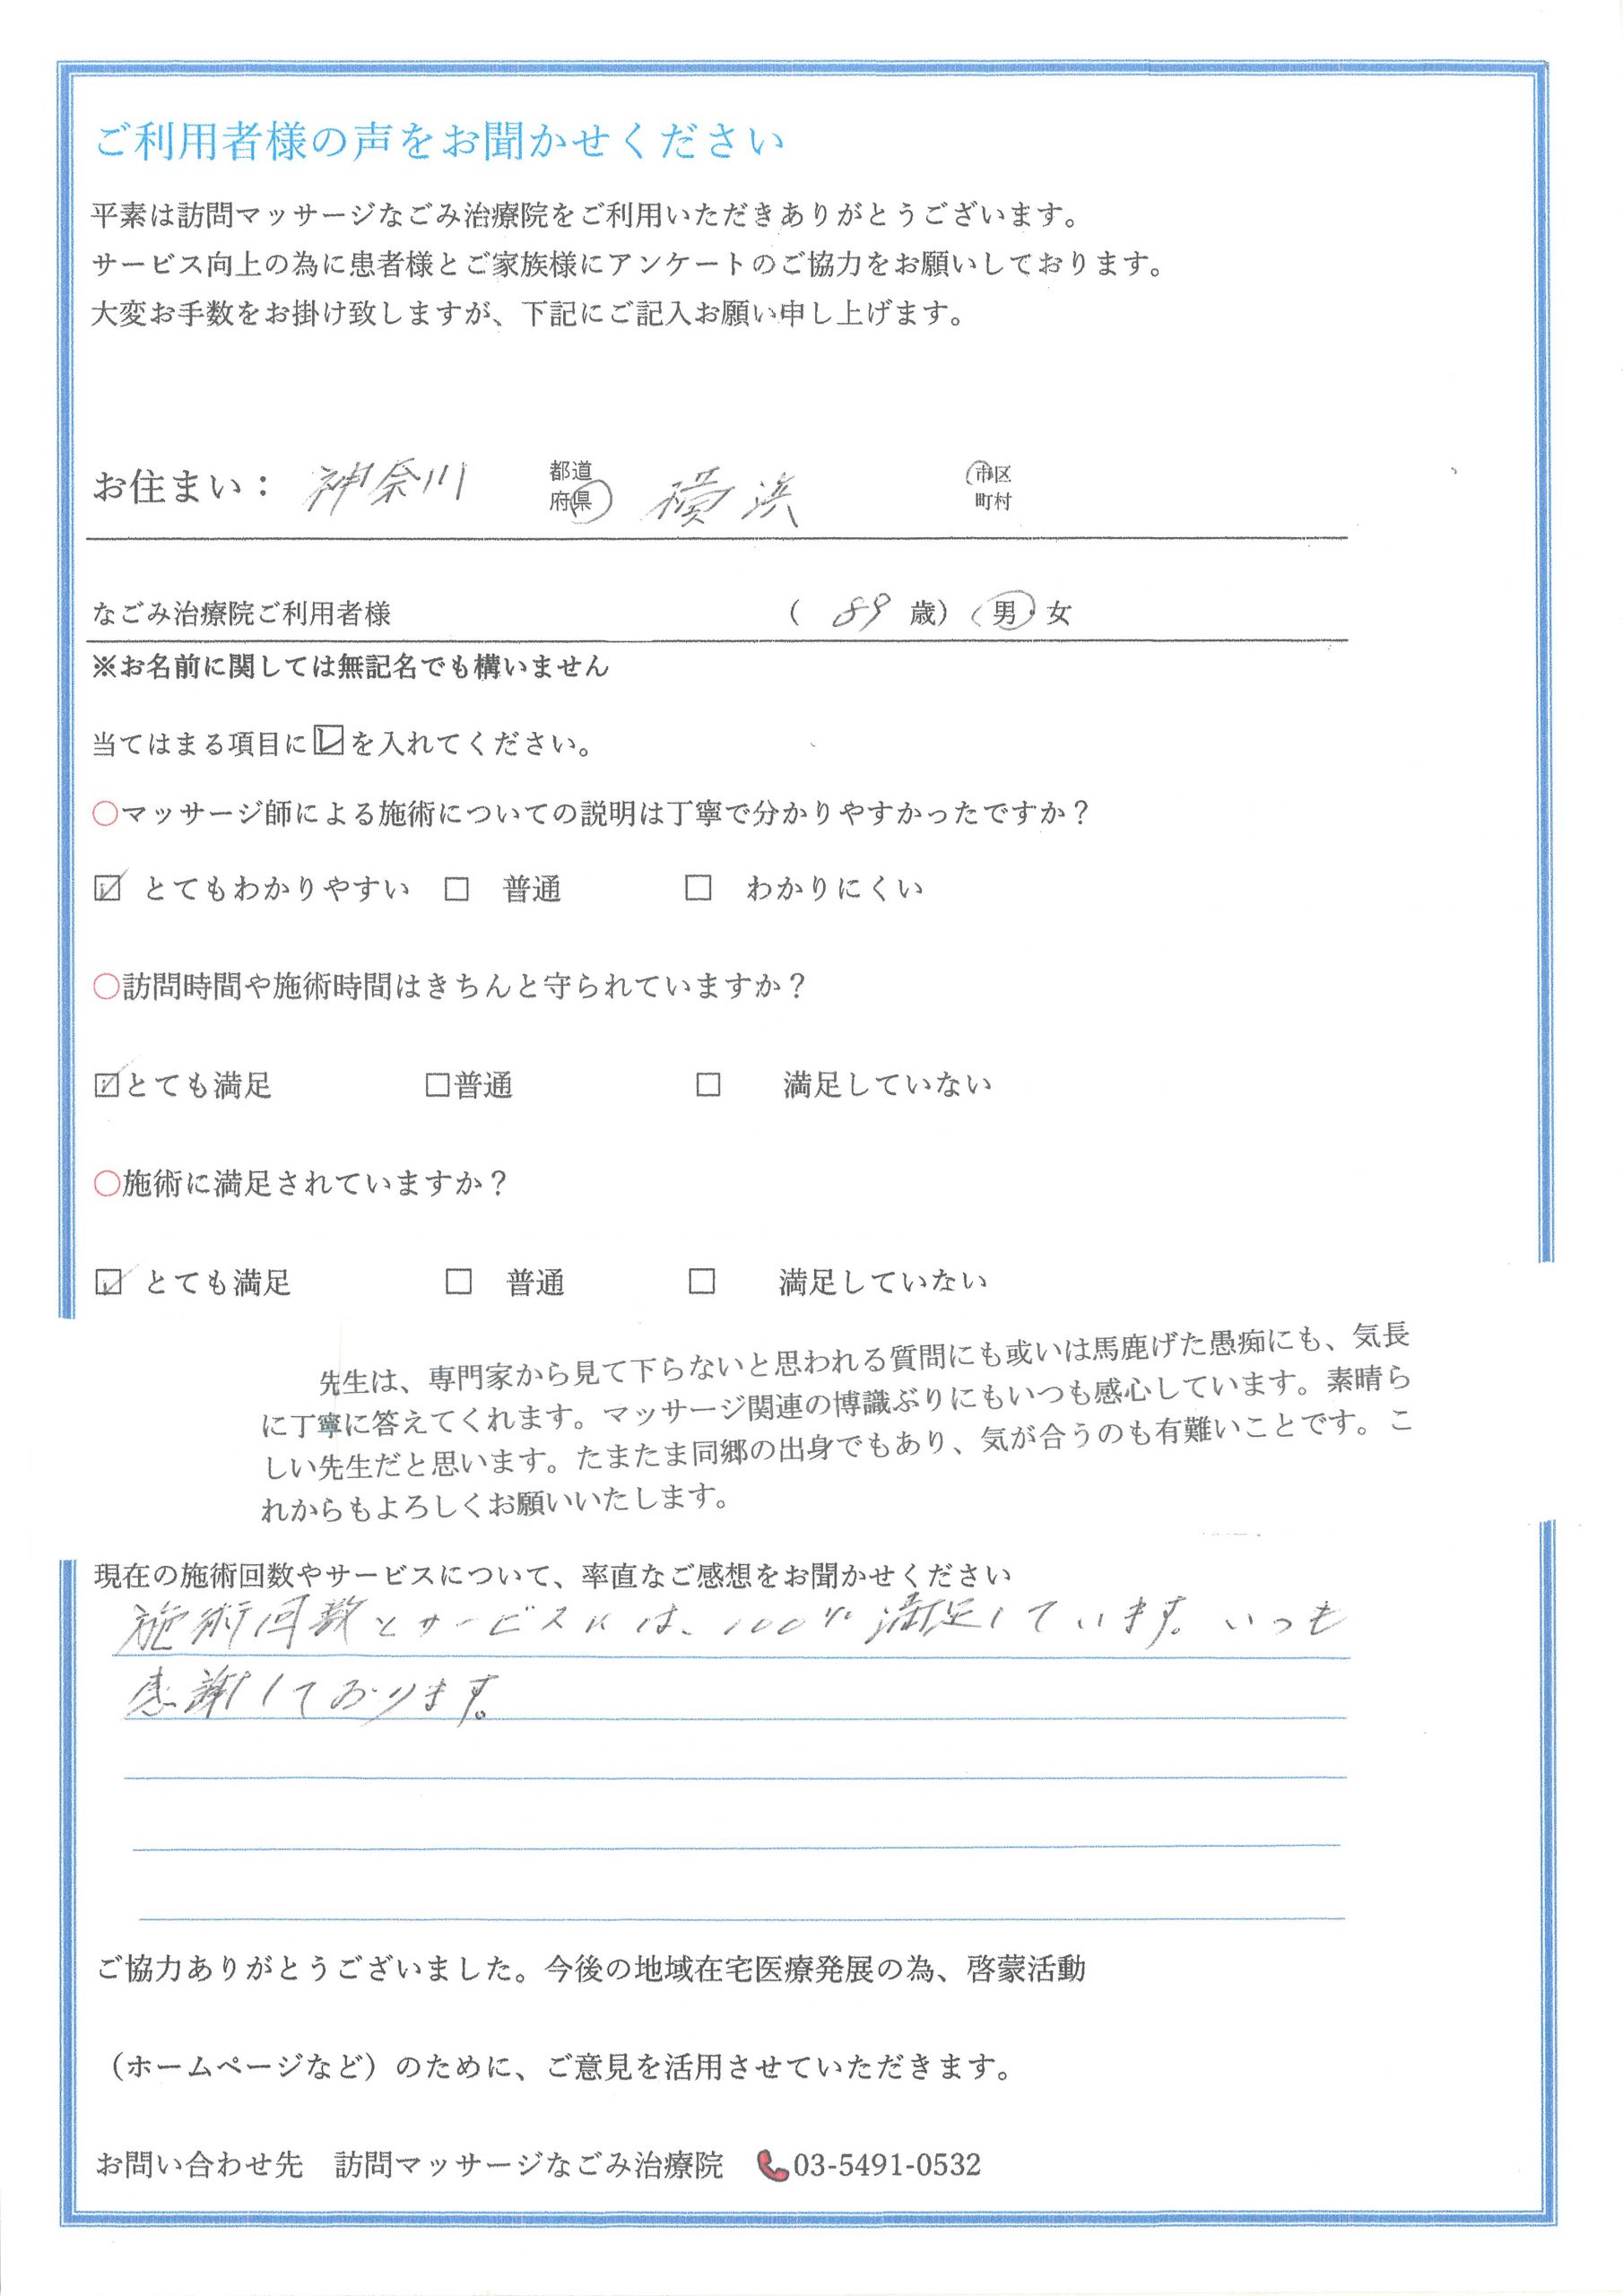 ご利用者様の声をお聞かせください
平素は訪問マッサージなごみ治療院をご利用いただきありがとうございます。
サービス向上の為に患者様とご家族様にアンケートのご協力をお願いしております。
大変お手数をお掛け致しますが、下記にご記入お願い申し上げます。
お住まい： 神奈川 都道府県 横浜 市区町村
なごみ治療院ご利用者様 （ 89 歳）（男・女
※お名前に関しては無記名でも構いません
当てはまる項目に☑を入れてください。
○マッサージ師による施術についての説明は丁寧で分かりやすかったですか？
☑ とてもわかりやすい □ 普通 □ わかりにくい
○訪問時間や施術時間はきちんと守られていますか？
☑とても満足 □普通 □ 満足していない
○施術に満足されていますか？
☑ とても満足 □ 普通 □ 満足していない
先生は、専門家から見て下らないと思われる質問にも或いは馬鹿げた愚痴にも、気長
に丁寧に答えてくれます。マッサージ関連の博識ぶりにもいつも感心しています。素晴ら
しい先生だと思います。たまたま同郷の出身でもあり、気が合うのも有難いことです。こ
れからもよろしくお願いいたします。
現在の施術回数やサービスについて、率直なご感想をお聞かせください
施術回数とサービスには、100%満足しています。いつも
感謝しております。
ご協力ありがとうございました。今後の地域在宅医療発展の為、啓蒙活動
（ホームページなど）のために、ご意見を活用させていただきます。
お問い合わせ先 訪問マッサージなごみ治療院 03-5491-0532